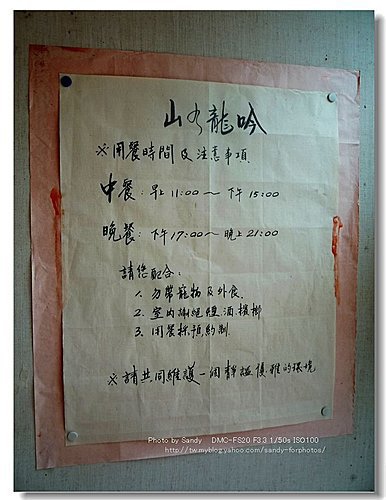 山水龍吟
※用餐時間及注意事項
中餐：早上 11:00～下午 15:00
晚餐：下午 17:00～晚上 21:00
請您配合：
1. 勿帶寵物及外食.
2. 室內謝絕煙.酒.檳榔
3. 用餐採預約制.
※請共同維護一個靜謐優雅的環境
Photo by Sandy DMC-FS20 F3.3 1/50s ISO100
http://tw.myblog.yahoo.com/sandy-forphotos/